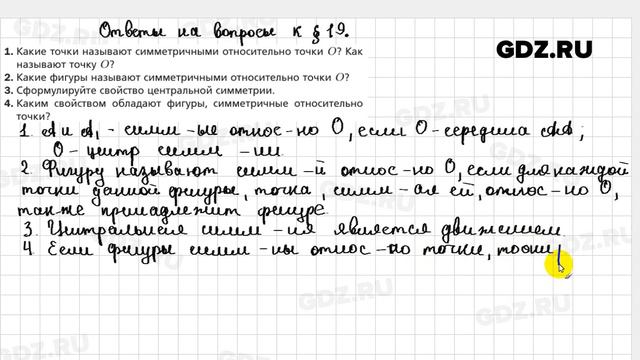 Ответы на вопросы к § 19.
GDZ.RU
1. Какие точки называют симметричными относительно точки O? Как
называют точку O?
2. Какие фигуры называют симметричными относительно точки O?
3. Сформулируйте свойство центральной симметрии.
4. Каким свойством обладают фигуры, симметричные относительно
точки?
1. A и A₁ - симм-ые относ-но O, если O-середина AA₁;
O - центр симм-ии.
2. Фигуру называют симм-й относ-но O, если для каждой
точки данной фигуры, точка, симм-ая ей, относ-но O,
также принадлежит фигуре
3. Центральная симм-ия является движением.
4. Если фигуры симм-ны относ-но точки, то они